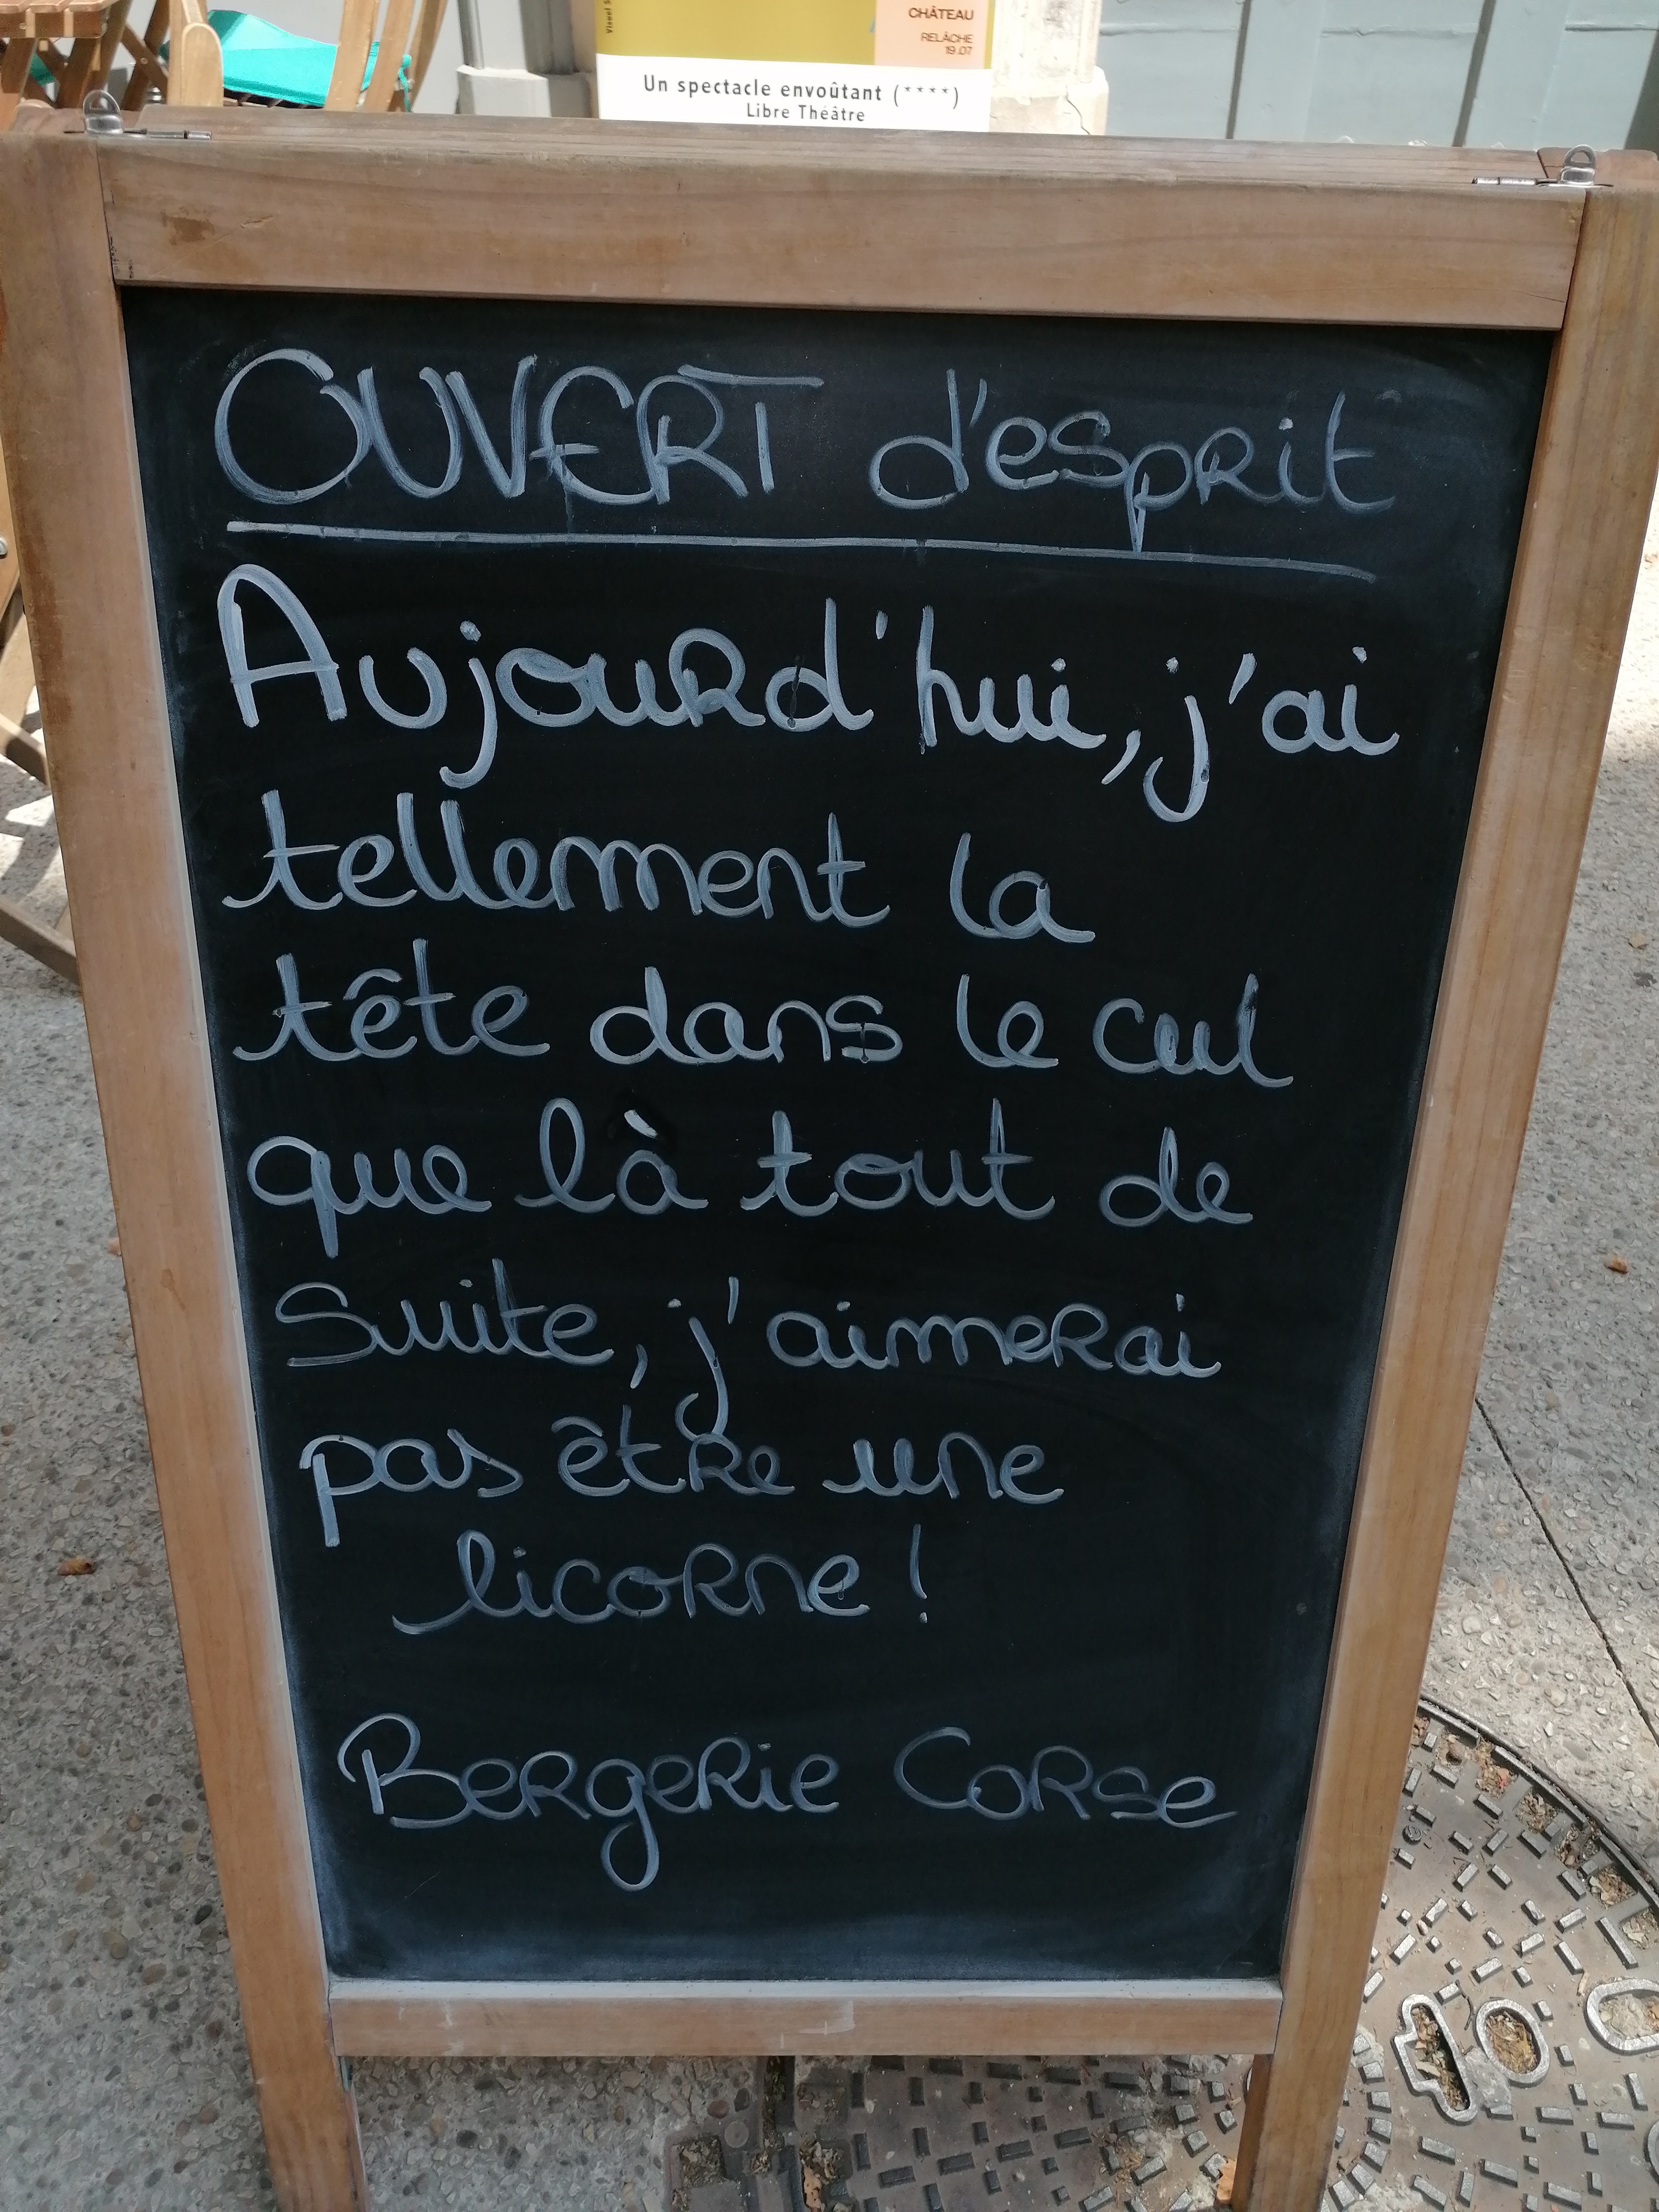 CHÂTEAU
RELÂCHE
19.07
Un spectacle envoûtant (****)
Libre Théâtre
OUVERT d'esprit
Aujourd'hui, j'ai
tellement la
tête dans le cul
que là tout de
Suite, j'aimerai
pas être une
licorne !
Bergerie Corse